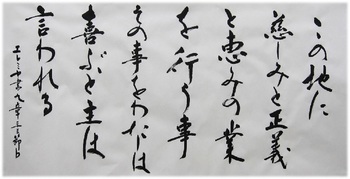 この地に
慈しみと正義
と恵みの業
を行う事
その事をわたしは
喜ぶと主は
言われる
エレミヤ書九章二三節